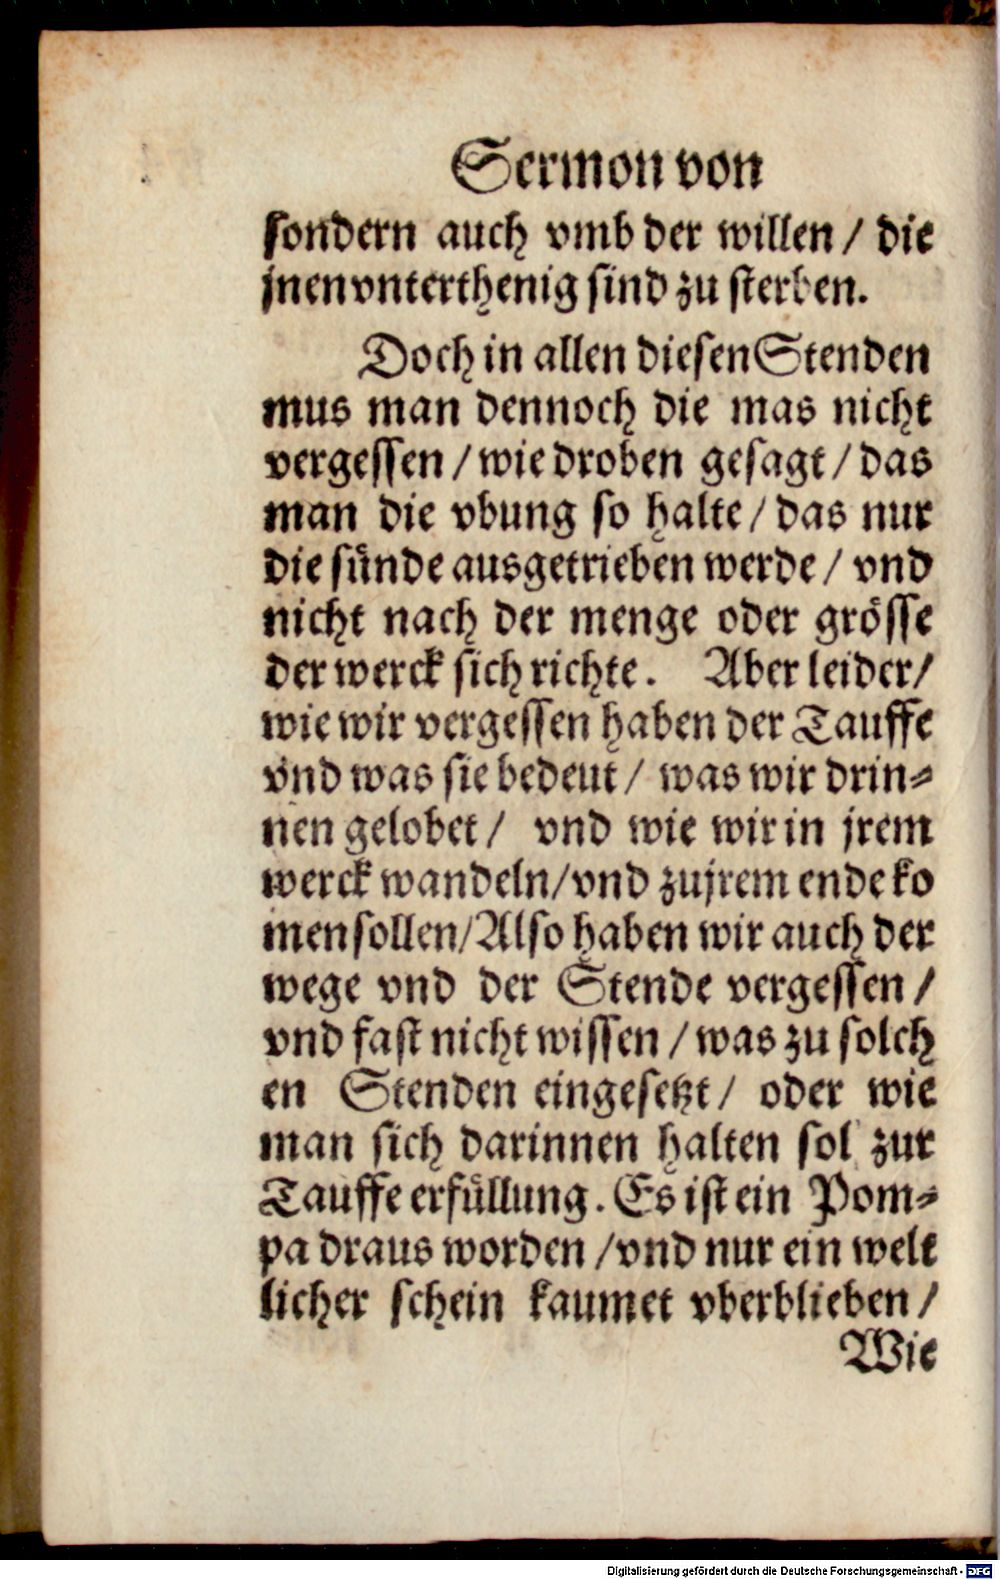 Sermon von
sondern auch vmb der willen / die
jnen vnterthenig sind zu sterben.
Doch in allen diesen Stenden
mus man dennoch die mas nicht
vergessen / wie droben gesagt / das
man die vbung so halte / das nur
die sünde ausgetrieben werde / vnd
nicht nach der menge oder grösse
der werck sich richte. Aber leider /
wie wir vergessen haben der Tauffe
vnd was sie bedeut / was wir drin-
nen gelobet / vnd wie wir in jrem
werck wandeln / vnd zu jrem ende ko
men sollen / Also haben wir auch der
wege vnd der Stende vergessen /
vnd fast nicht wissen / was zu solch
en Stenden eingesetzt / oder wie
man sich darinnen halten sol zur
Tauffe erfüllung. Es ist ein Pom-
pa draus worden / vnd nur ein welt
licher schein kaumet vberblieben /
Wie
Digitalisierung gefördert durch die Deutsche Forschungsgemeinschaft - DFG